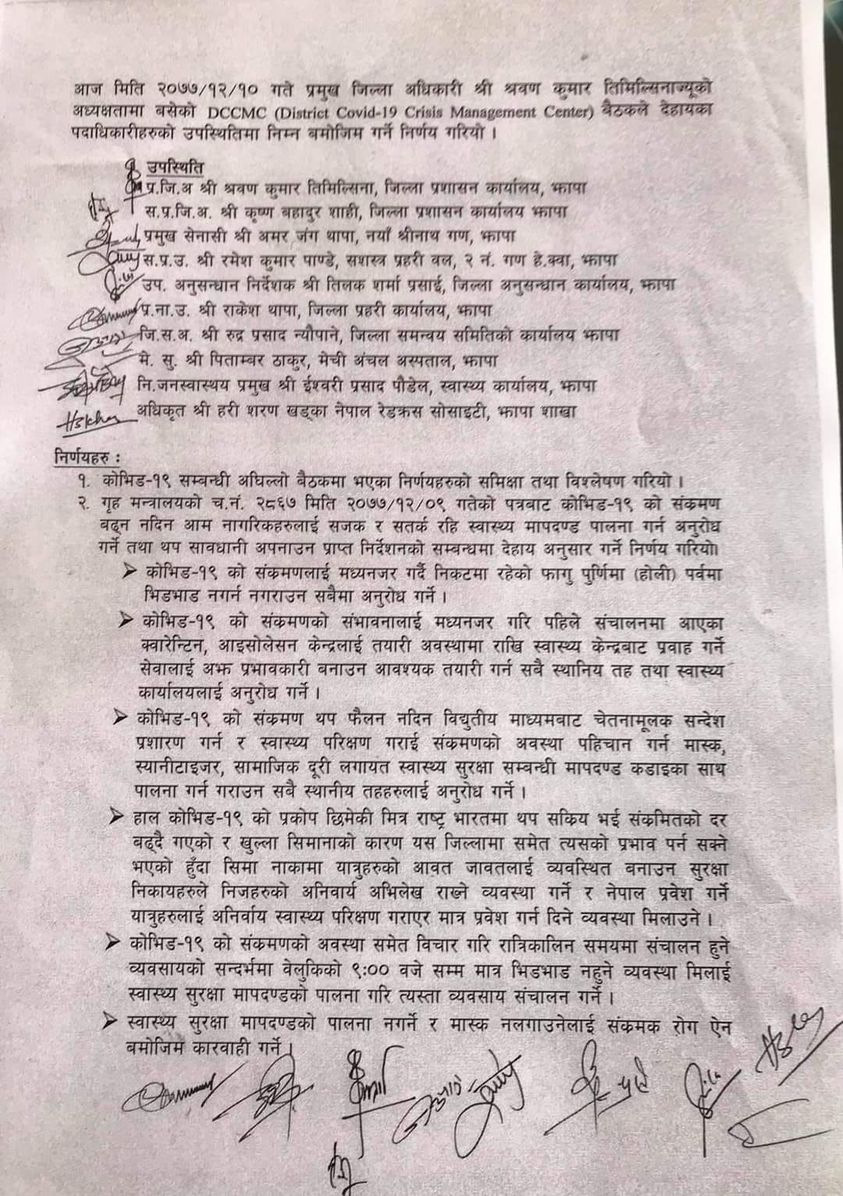 आज मिति २०७७/१२/१० गते प्रमुख जिल्ला अधिकारी श्री श्रवण कुमार तिमिल्सिनाज्यूको
अध्यक्षतामा बसेको DCCMC (District Covid-19 Crisis Management Center) बैठकले देहायका
पदाधिकारीहरुको उपस्थितिमा निम्न बमोजिम गर्ने निर्णय गरियो ।
उपस्थिति
प्र.जि.अ श्री श्रवण कुमार तिमिल्सिना, जिल्ला प्रशासन कार्यालय, झापा
स.प्र.जि.अ. श्री कृष्ण बहादुर शाही, जिल्ला प्रशासन कार्यालय झापा
प्रमुख सेनासी श्री अमर जंग थापा, नयाँ श्रीनाथ गण, झापा
स.प्र.उ. श्री रमेश कुमार पाण्डे, सशस्त्र प्रहरी वल, २ नं. गण हे.क्वा, झापा
उप. अनुसन्धान निर्देशक श्री तिलक शर्मा प्रसाई, जिल्ला अनुसन्धान कार्यालय, झापा
प्र.ना.उ. श्री राकेश थापा, जिल्ला प्रहरी कार्यालय, झापा
जि.स.अ. श्री रुद्र प्रसाद न्यौपाने, जिल्ला समन्वय समितिको कार्यालय झापा
मे. सु. श्री पिताम्वर ठाकुर, मेची अंचल अस्पताल, झापा
नि.जनस्वास्थय प्रमुख श्री ईश्वरी प्रसाद पौडेल, स्वास्थ्य कार्यालय, झापा
अधिकृत श्री हरी शरण खड्का नेपाल रेडक्रस सोसाइटी, झापा शाखा
निर्णयहरु :
१. कोभिड-१९ सम्बन्धी अघिल्लो बैठकमा भएका निर्णयहरुको समिक्षा तथा विश्लेषण गरियो ।
२. गृह मन्त्रालयको च.नं. २८६७ मिति २०७७/१२/०९ गतेको पत्रबाट कोभिड-१९ को संक्रमण
बढ्न नदिन आम नागरिकहरुलाई सजक र सतर्क रहि स्वास्थ्य मापदण्ड पालना गर्न अनुरोध
गर्ने तथा थप सावधानी अपनाउन प्राप्त निर्देशनको सम्बन्धमा देहाय अनुसार गर्ने निर्णय गरियो।
➤ कोभिड-१९ को संक्रमणलाई मध्यनजर गर्दै निकटमा रहेको फागु पुर्णिमा (होली) पर्वमा
भिडभाड नगर्न नगराउन सबैमा अनुरोध गर्ने ।
➤ कोभिड-१९ को संक्रमणको संभावनालाई मध्यनजर गरि पहिले संचालनमा आएका
क्वारेन्टिन, आइसोलेसन केन्द्रलाई तयारी अवस्थामा राखि स्वास्थ्य केन्द्रबाट प्रवाह गर्ने
सेवालाई अझ प्रभावकारी बनाउन आवश्यक तयारी गर्न सबै स्थानिय तह तथा स्वास्थ्य
कार्यालयलाई अनुरोध गर्ने ।
➤ कोभिड-१९ को संक्रमण थप फैलन नदिन विद्युतीय माध्यमबाट चेतनामूलक सन्देश
प्रशारण गर्न र स्वास्थ्य परिक्षण गराई संक्रमणको अवस्था पहिचान गर्न मास्क,
स्यानीटाइजर, सामाजिक दूरी लगायंत स्वास्थ्य सुरक्षा सम्बन्धी मापदण्ड कडाइका साथ
पालना गर्न गराउन सबै स्थानीय तहहरुलाई अनुरोध गर्ने ।
➤ हाल कोभिड-१९ को प्रकोप छिमेकी मित्र राष्ट्र भारतमा थप सक्रिय भई संक्रमितको दर
बढ्दै गएको र खुल्ला सिमानाको कारण यस जिल्लामा समेत त्यसको प्रभाव पर्न सक्ने
भएको हुँदा सिमा नाकामा यात्रुहरुको आवत जावतलाई व्यवस्थित बनाउन सुरक्षा
निकायहरुले निजहरुको अनिवार्य अभिलेख राख्ने व्यवस्था गर्ने र नेपाल प्रवेश गर्ने
यात्रुहरुलाई अनिर्वाय स्वास्थ्य परिक्षण गराएर मात्र प्रवेश गर्न दिने व्यवस्था मिलाउने ।
➤ कोभिड-१९ को संक्रमणको अवस्था समेत विचार गरि रात्रिकालिन समयमा संचालन हुने
व्यवसायको सन्दर्भमा वेलुकिको ९:०० वजे सम्म मात्र भिडभाड नहुने व्यवस्था मिलाई
स्वास्थ्य सुरक्षा मापदण्डको पालना गरि त्यस्ता व्यवसाय संचालन गर्ने ।
➤ स्वास्थ्य सुरक्षा मापदण्डको पालना नगर्ने र मास्क नलगाउनेलाई संक्रमक रोग ऐन
बमोजिम कारवाही गर्ने ।